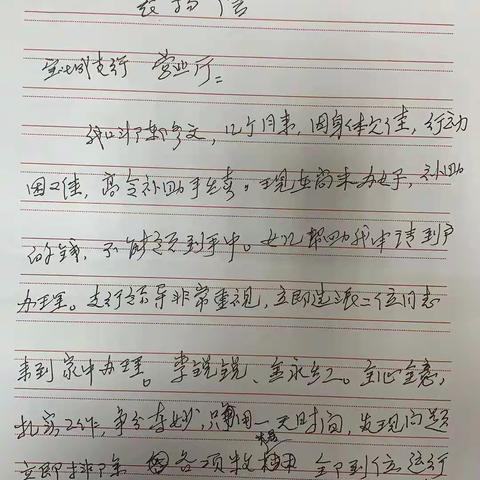 表扬信
支行 营业厅：
几个月来，因身体欠佳，行动
因不佳，高令补助手续。现在尚未办好，补助
的钱，不能领到手中。女儿帮助我申请到户
办理。支行领导非常重视，立即选派二位同志
来到家中办理。李锐锐、金永红。全心全意，
扎实工作，争分夺妙，只用一天时间，发现问题
立即排除 各项数据 全部到位运行